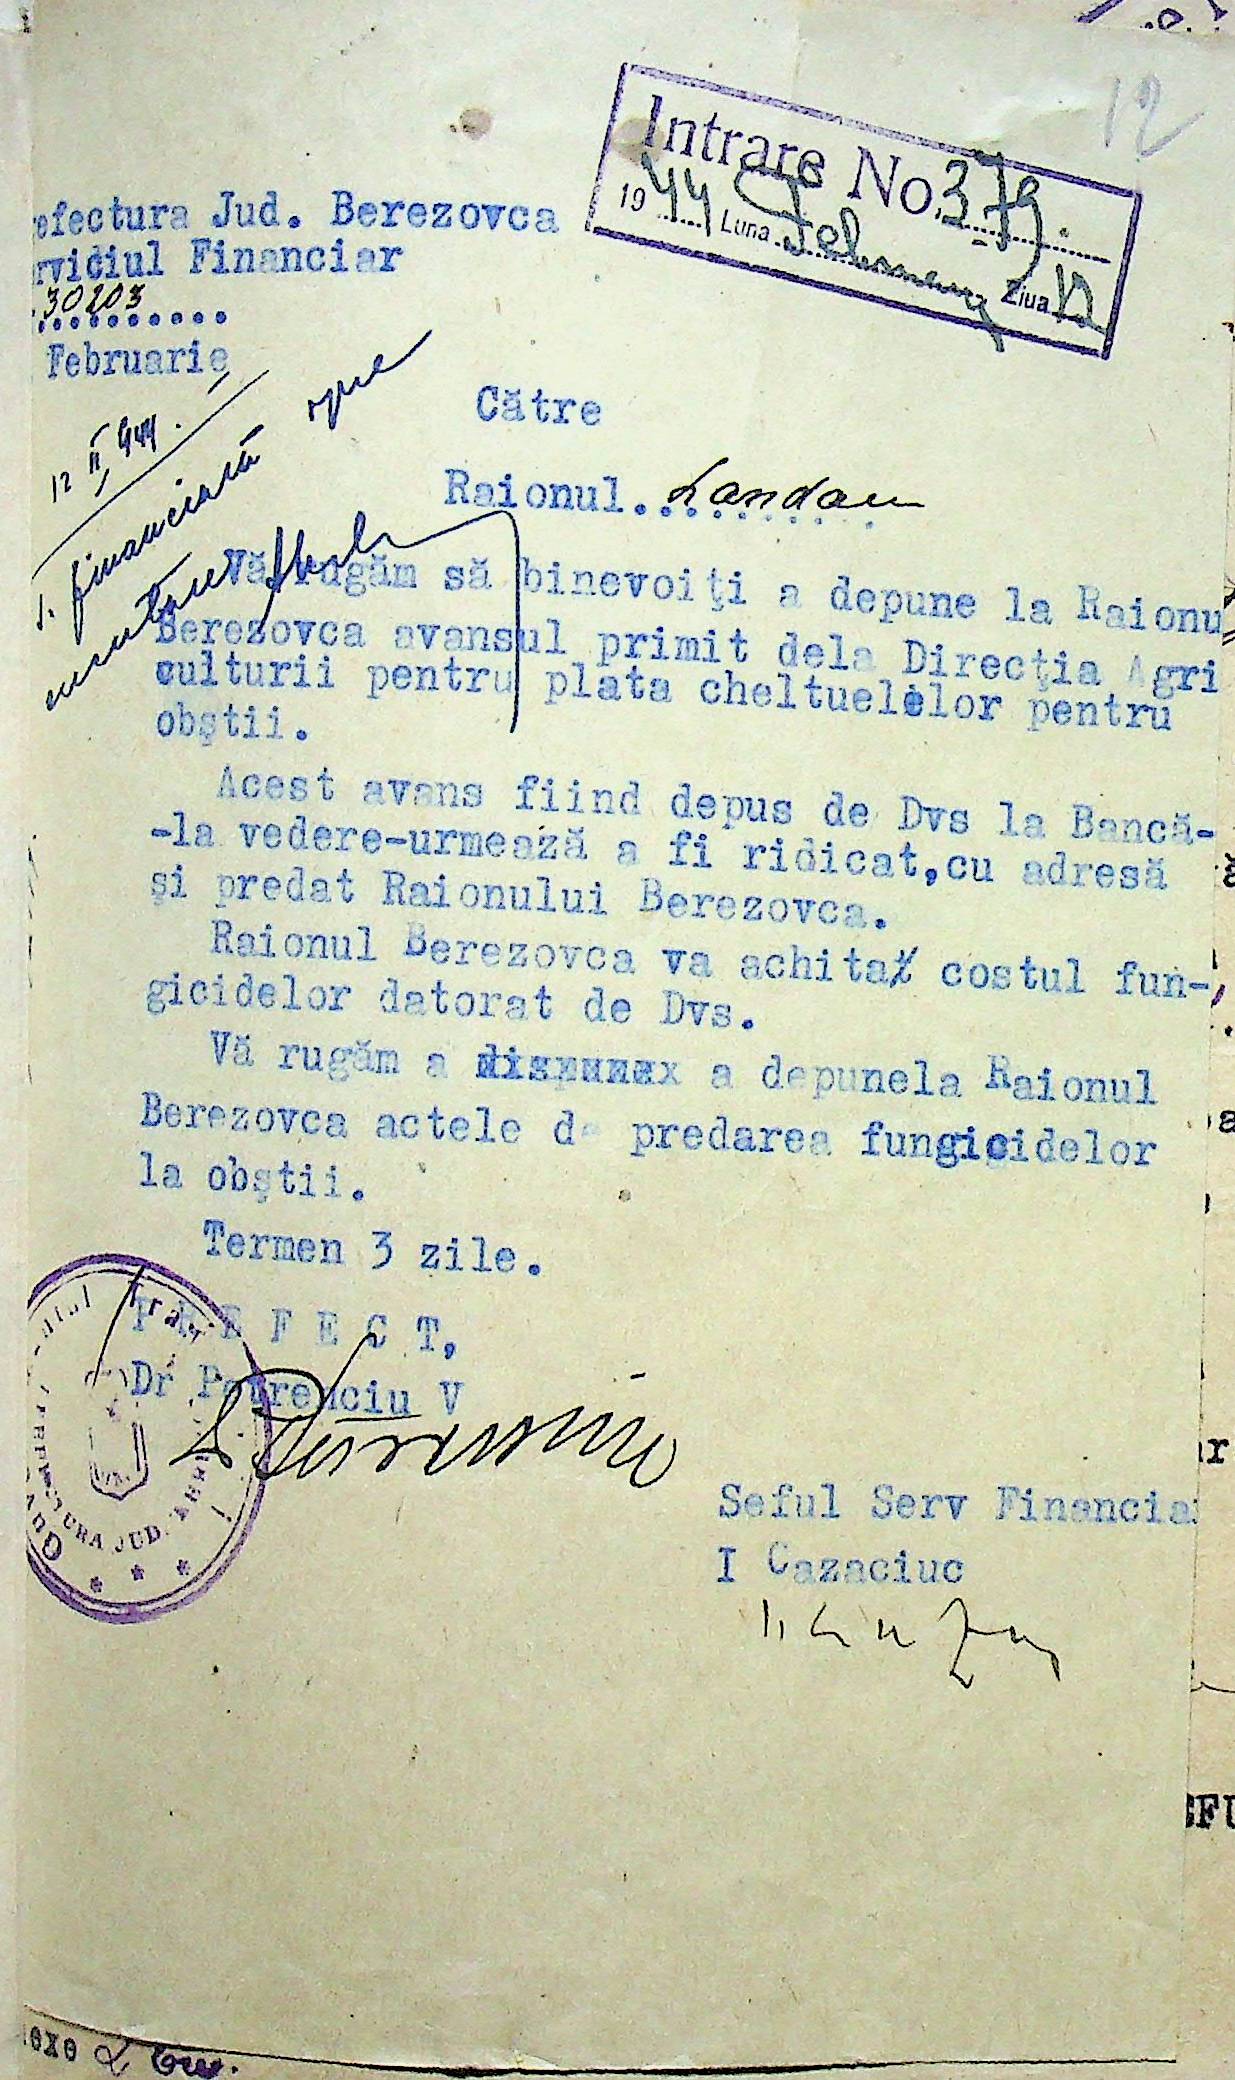 12
Intrare No. 379
1944 Luna Februarie Ziua 12
refectura Jud. Berezovca
rviciul Financiar
30203
Februarie
12 II 944.
S. financiară spre
Către
Raionul... Landau
Vă rugăm să binevoiţi a depune la Raionu
Berezovca avansul primit dela Direcţia Agri
culturii pentru plata cheltuelelor pentru
obştii.
Acest avans fiind depus de Dvs la Bancă-
-la vedere-urmează a fi ridicat,cu adresă
şi predat Raionului Berezovca.
Raionul Berezovca va achita costul fun-
gicidelor datorat de Dvs.
Vă rugăm a a depunela Raionul
Berezovca actele de predarea fungicidelor
la obştii.
Termen 3 zile.
P R E F E C T,
Dr Petrenciu V
PREFECTURA JUD.
Seful Serv Financia
I Cazaciuc
exe